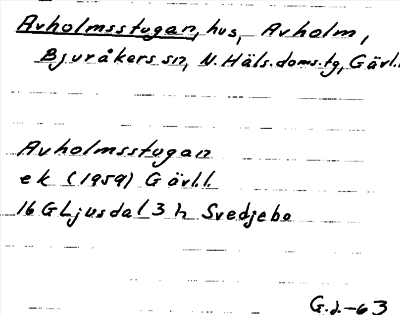 Avholmsstugan, hus, Avholm,
Bjuråkers sn, N. Häls. doms.tg, Gävl.l.
Avholmsstugan
ek (1959) Gävl.l.
16 G Ljusdal 3 h Svedjebo
G.J.-63